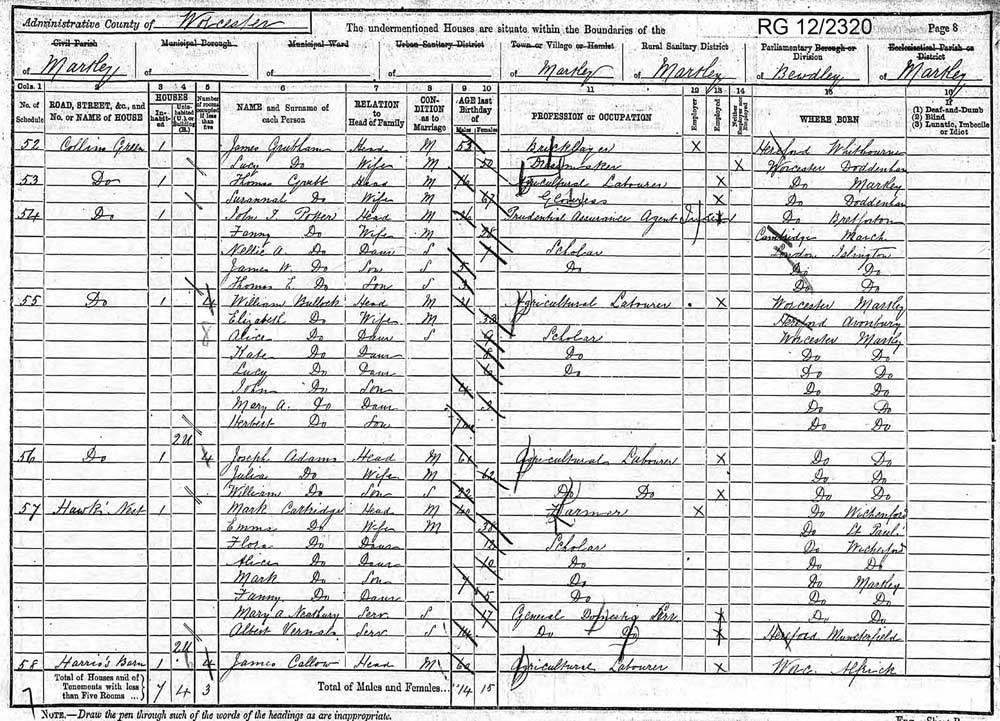 Administrative County of Worcester
The undermentioned Houses are situate within the Boundaries of the
RG 12/2320
Page 8
Civil Parish
Municipal Borough
Municipal Ward
Urban Sanitary District
Town or Village or Hamlet
Rural Sanitary District
Parliamentary Borough or Division
Ecclesiastical Parish or District
of Martley of of of of Martley of Martley of Bewdley of Martley
Cols. 1 2 3 4 5 6 7 8 9 10 11 12 13 14 15 16
No. of Schedule
ROAD, STREET, &c., and No. or NAME of HOUSE
HOUSES
Inhabited
Uninhabited (U.), or Building (B.)
Number of rooms occupied if less than five
NAME and Surname of each Person
RELATION to Head of Family
CONDITION as to Marriage
AGE last Birthday of
Males Females
PROFESSION or OCCUPATION
Employer
Employed
Neither Employer nor Employed
WHERE BORN
If
(1) Deaf-and-Dumb
(2) Blind
(3) Lunatic, Imbecile or Idiot
52 Collins Green 1 James Head M 53 Bricklayer X Hereford Whitbourne
Lucy Do Wife M 50 Dressmaker X Worcester Doddenham
53 Do 1 Thomas Head M Agricultural Labourer X Do Martley
Susannah Do Wife M 67 Gloveress X Do Doddenham
54 Do 1 John Potter Head M Prudential Assurance Agent Do Bretforton
Fanny Do Wife M 28 Cambridge March
Nellie A. Do Daur S 7 Scholar London Islington
James W. Do Son S 5 Do Do Do
Thomas E. Do Son S Do Do
55 Do 1 4 William Bullock Head M Agricultural Labourer X Worcester Martley
Elizabeth Do Wife M Hereford Avonbury
Alice Do Daur S 9 Scholar Worcester Martley
Kate Do Daur 8 Do Do Do
Lucy Do Daur Do Do Do
John Do Son 4 Do Do
Mary A. Do Daur Do Do
Herbert Do Son Do Do
2U
56 Do 1 4 Joseph Adams Head M Agricultural Labourer X Do Do
Julia Do Wife M 62 Do Do
William Do Son S 22 Do Do X Do Do
57 Hawk's Nest 1 Mark Cartridge Head M 40 Farmer X Do Wichenford
Emma Do Wife M 38 Do St Paul's
Flora Do Daur Scholar Do Wichenford
Alice Do Daur 10 Do Do Do
Mark Do Son 7 Do Do Martley
Fanny Do Daur 5 Do Do Do
Mary A Neatbury Serv. S 17 General Domestic Serv. X Do Do
Albert Serv. S 14 Do Do X Hereford Munsterfield
2U
58 Harris's Barn 1 4 James Callow Head M 60 Agricultural Labourer X Worc. Alfrick
Total of Houses and of Tenements with less than Five Rooms ... 7 4 3 Total of Males and Females... 14 15
NOTE.—Draw the pen through such of the words of the headings as are inappropriate.